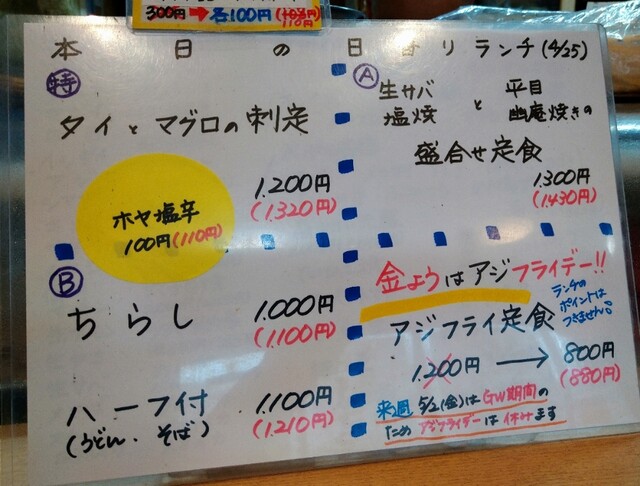 300円→各100円(110円)
本日の日替りランチ(4/25)
特
タイとマグロの刺定
1.200円
(1.320円)
ホヤ塩辛
100円(110円)
A
生サバ
塩焼
と
平目
幽庵焼きの
盛合せ定食
1.300円
(1.430円)
B
ちらし
1.000円
(1.100円)
ハーフ付
(うどん、そば)
1.100円
(1.210円)
金ようはアジフライデー!!
アジフライ定食
ランチの
ポイントは
つきません。
1.200円→800円
(880円)
来週 5/2(金)はGW期間の
ため アジフライデーは休みます